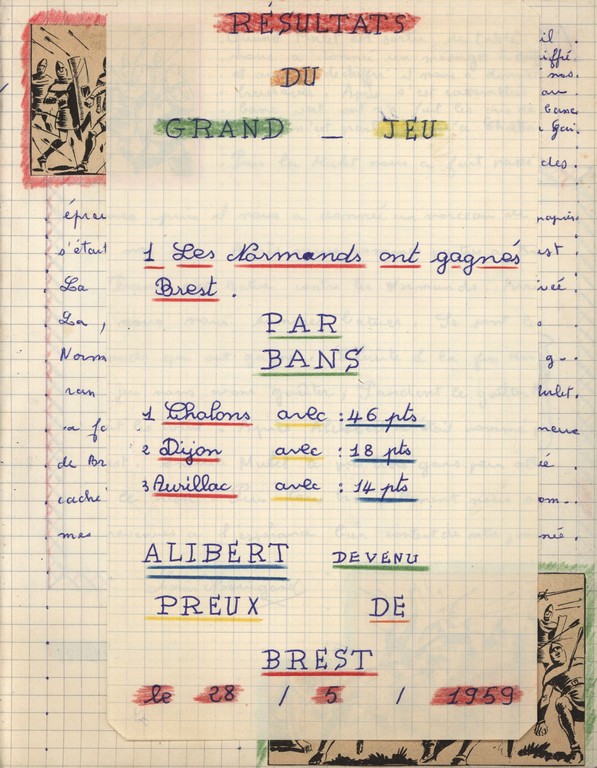 RÉSULTATS
DU
GRAND _ JEU
1 Les Normands ont gagnés
Brest.
PAR
BANS
1 Chalons avec : 46 pts
2 Dijon avec : 18 pts
3 Aurillac avec : 14 pts
ALIBERT DEVENU
PREUX DE
BREST
le 28 / 5 / 1959
s'était
La
La,
Norm
ran
de Br
caché
mes